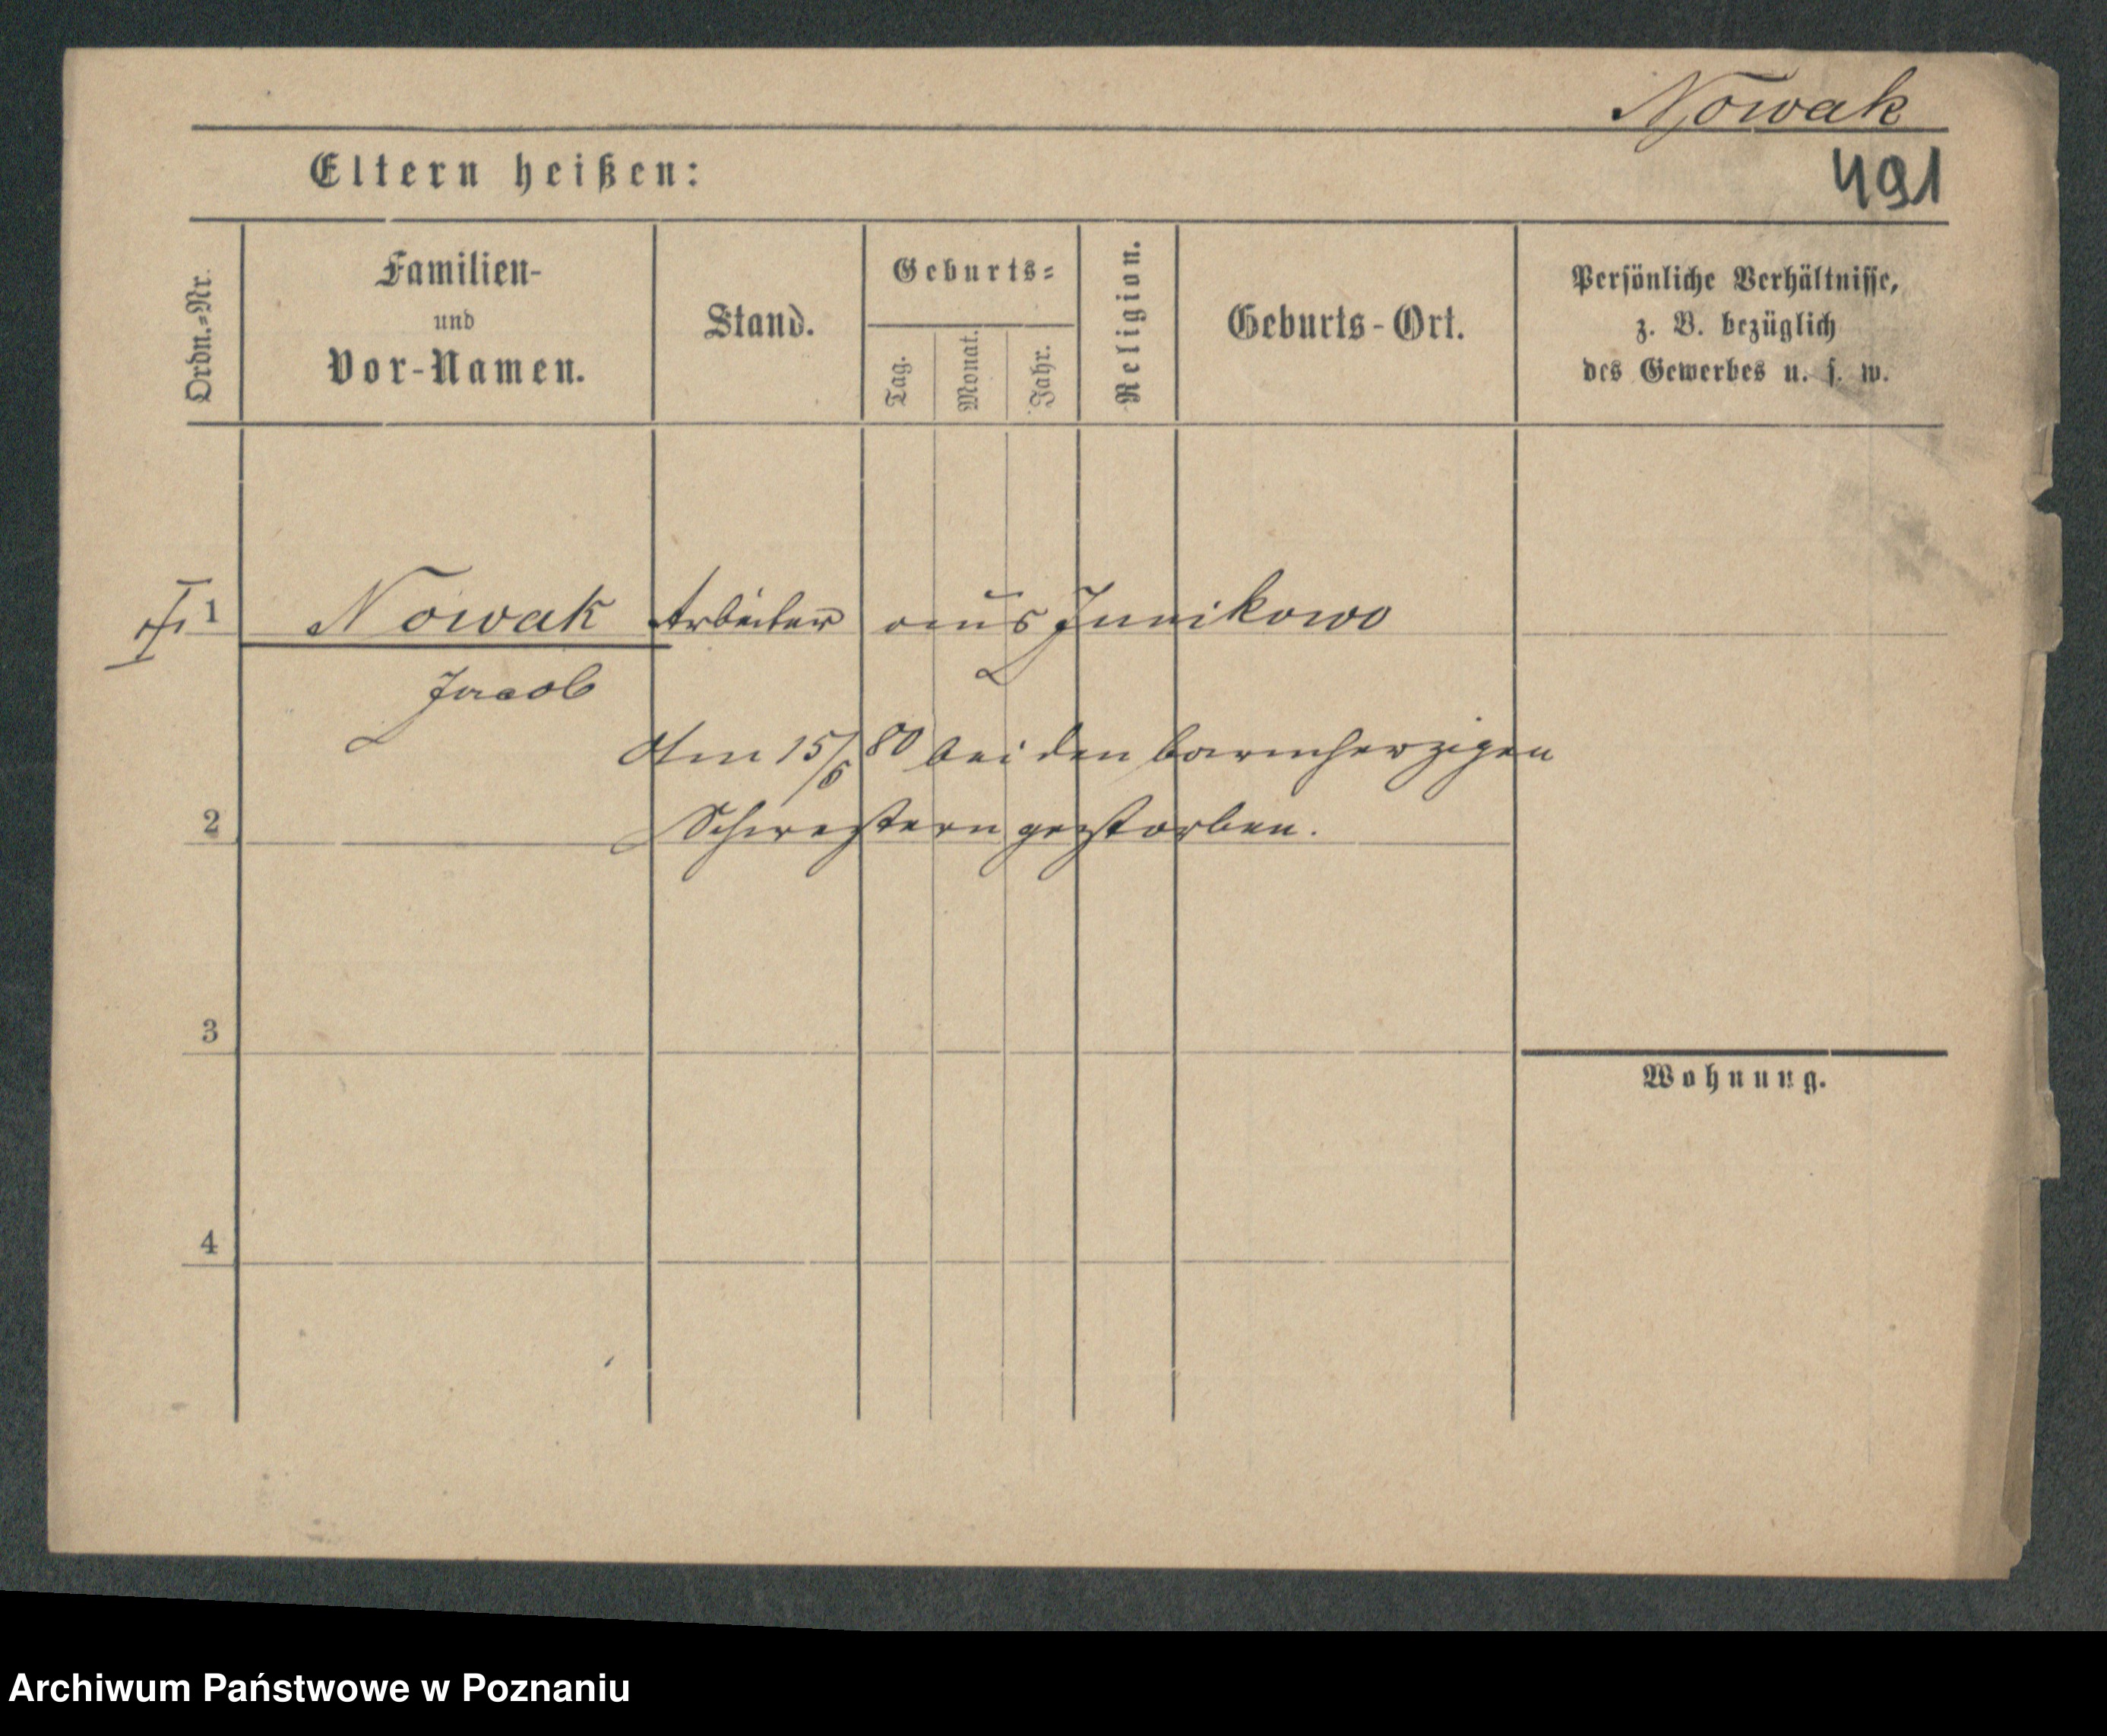 Nowak
491
Eltern heißen:
Ordn.=Nr.
Familien-
und
Vor-Namen.
Stand.
Geburts=
Tag.
Monat.
Jahr.
Religion.
Geburts-Ort.
Persönliche Verhältnisse,
z. B. bezüglich
des Gewerbes u. s. w.
1 Nowak Arbeiter aus Junikowo
Jacob
Am 15/6 80 bei den barmherzigen
2 Schwestern gestorben.
3
Wohnung.
4
Archiwum Państwowe w Poznaniu